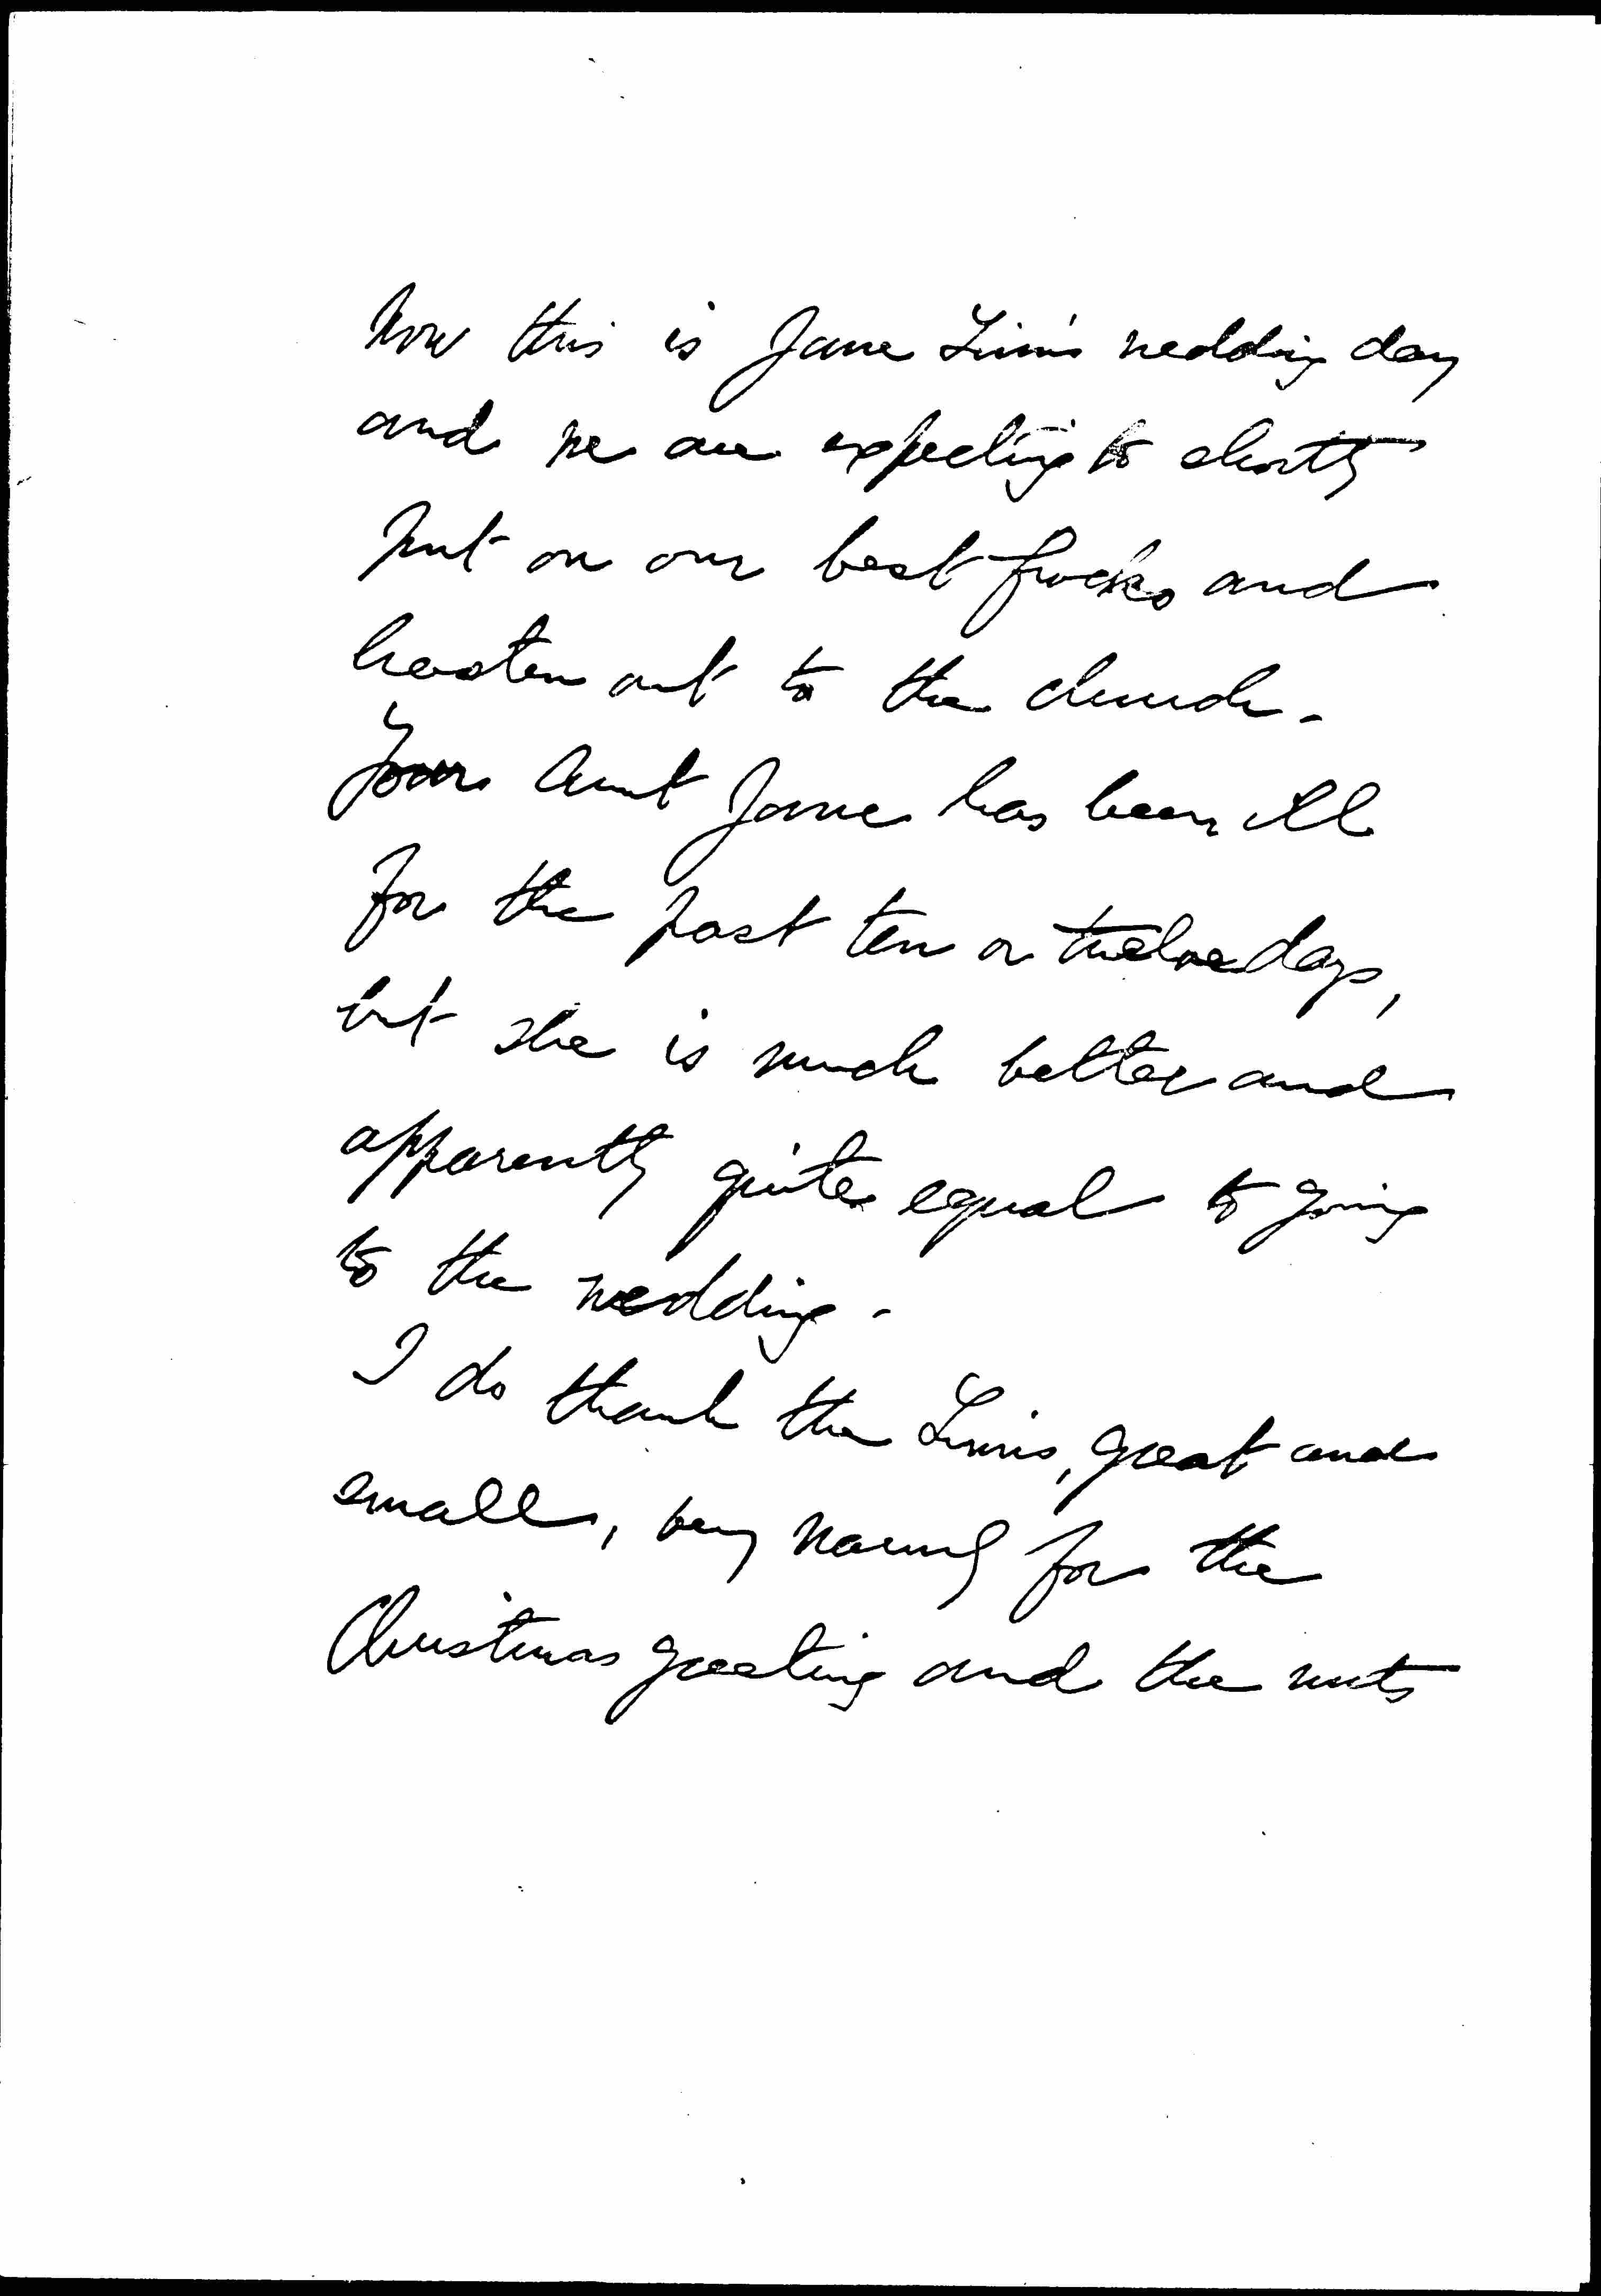 Now this is Jane Linn's wedding day
and we are expecting to shortly
put on our best frocks and
hasten out to the church.
Your Aunt Jane has been ill
for the past ten or twelve days,
but she is much better and
apparently quite equal to going
to the wedding.
I do thank the Linns, great and
small, very warmly for the
Christmas greeting and the nuts